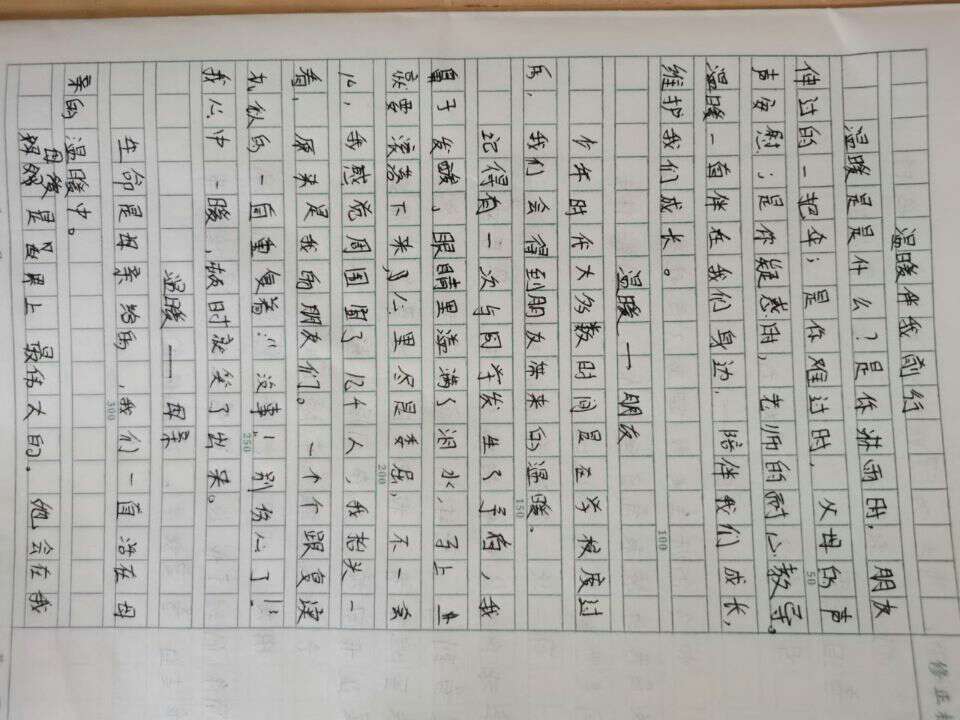 温暖伴我前行
温暖是是什么?是你淋雨时,朋友
伸过的一把伞;是你难过时,父母的声
声安慰;是你疑惑时,老师的耐心教导。
温暖一直伴在我们身边,陪伴我们成长,
维护我们成长。
温暖一朋友
少年时作大多数时间是在学校度过
的,我们会得到朋友带来的温暖。
记得有一次与同学发生了矛盾,我
鼻子发酸,眼睛里溢满了泪水,马上
就要滚落下来,心里尽是委屈,不一会
儿,我感觉周围围了几个人,我抬头一
看,原来是我的朋友们。一个个跟复读
机似的一直重复着:“没事!别伤心了!”
我心中一暖,顿时就笑了出来。
温暖——母亲
生命是母亲给的,我们一直活在母
亲的温暖中。
母爱是世界上最伟大的。她会在我
50
100
150
200
250
300
修正